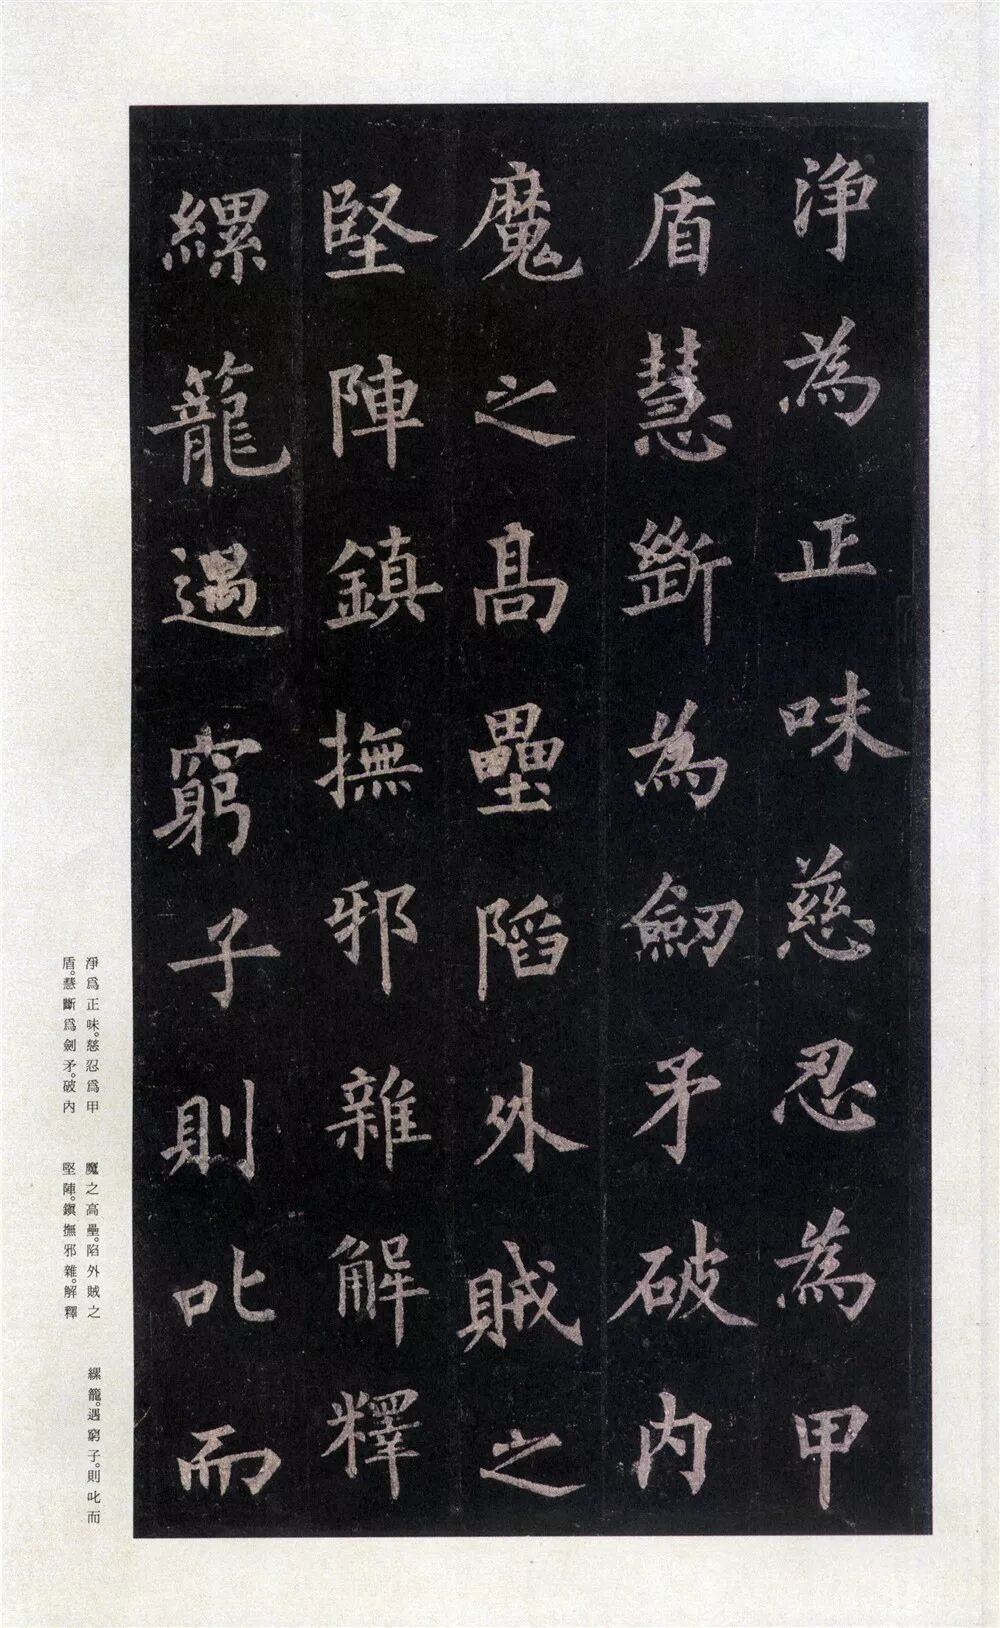 淨為正味慈忍為甲
盾慧斷為劒矛破內
魔之髙壘陷外賊之
堅陣鎮撫邪雜解釋
縲籠遇窮子則叱而
淨爲正味。慈忍爲甲
盾。慧斷爲劍矛。破內
魔之高壘。陷外賊之
堅陣。鎭撫邪雜。解釋
縲籠。遇窮子。則叱而